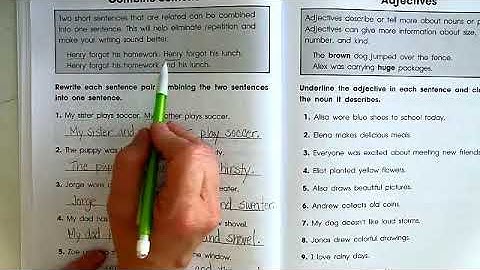 Combine Sentences
Two short sentences that are related can be combined
into one sentence. This will help eliminate repetition and
make your writing sound better.
Henry forgot his homework. Henry forgot his lunch.
Henry forgot his homework and his lunch.
Rewrite each sentence pair, combining the two sentences
into one sentence.
1. My sister plays soccer. My brother plays soccer.
My sister and play soccer.
2. The puppy was
The pupp thirsty.
3. Jorge wore a sweater.
Jorge and sweater.
4. My dad has shovel.
My dad and shovel.
5. Zoe window.
and the
Adjectives
Adjectives describe or tell more about nouns or
Adjectives can give more information about size,
number, and kind.
The brown dog jumped over the fence.
Alex was carrying huge packages.
Underline the adjective in each sentence and
the noun it describes.
1. Alisa wore blue shoes to school today.
2. Elena makes delicious meals.
3. Everyone was excited about meeting new friends
4. Eliot planted yellow flowers.
5. Alisa draws beautiful pictures.
6. Andrew collects old coins.
7. My dog doesn't like loud storms.
8. Jonas drew colorful drawings.
9. I love rainy days.